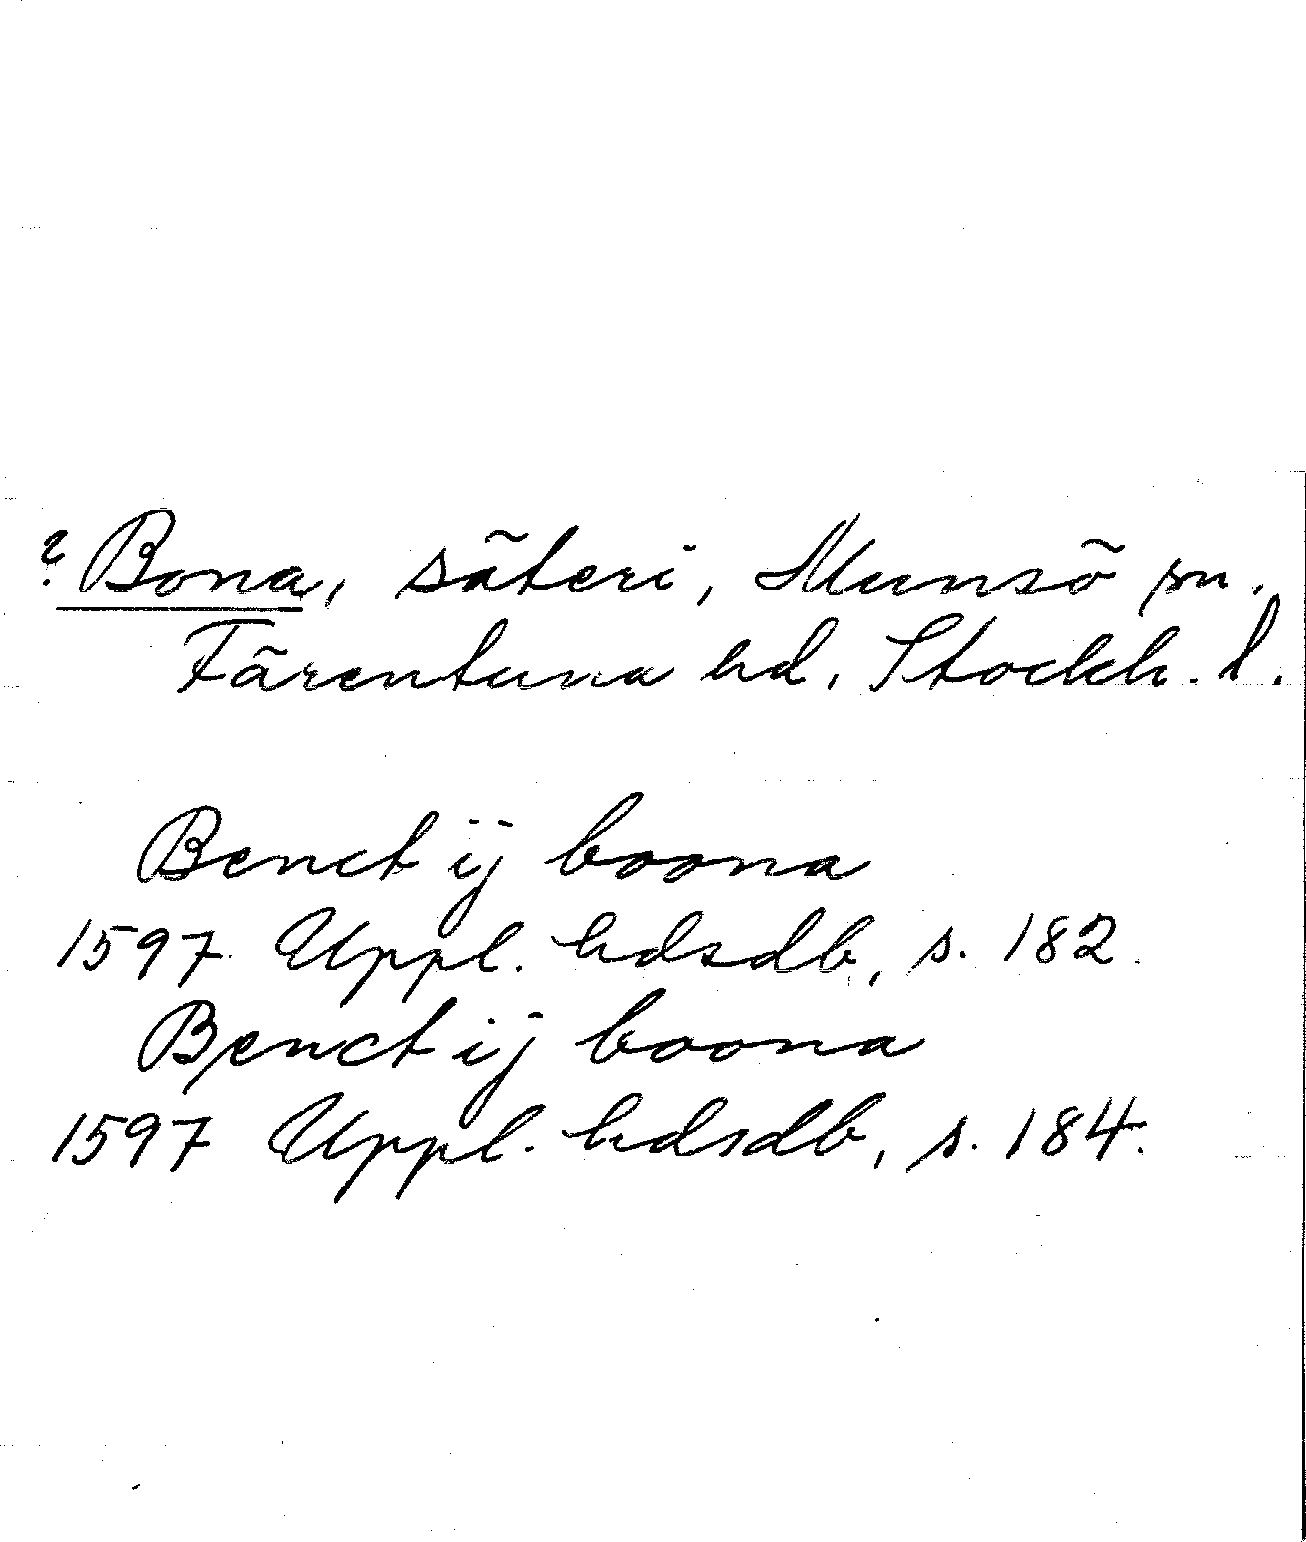 ? Bona, säteri, Munsö sn.
Färentuna hd. Stockh. l.
Benct ij boona
1597 Uppl. hdsdb, s. 182.
Benct ij boona
1597 Uppl. hdsdb, s. 184.